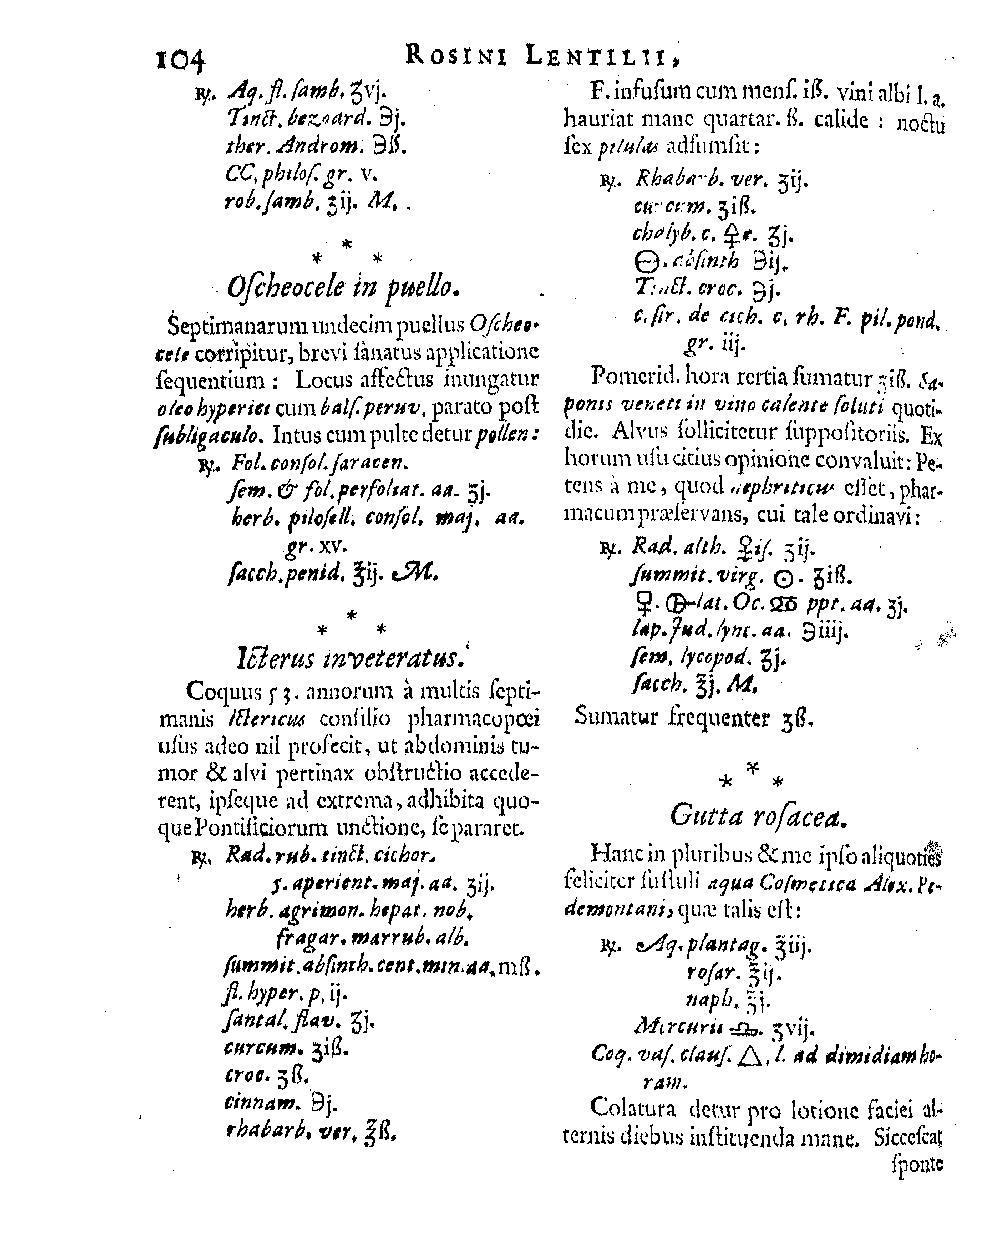 104 ROSINI LENTILII,
℞. Aq. fl. ſamb. ʒvj.
Tinct. bezoard. ℈j.
ther. Androm. ℈ß.
CC. philoſ. gr. v.
rob. ſamb. ʒij. M.
* * *
Oſcheocele in puello.
Septimanarum undecim puellus Oſcheo-
cele corripitur, brevi ſanatus applicatione
ſequentium : Locus affectus inungatur
oleo hyperici cum balſ. peruv. parato poſt
ſubligaculo. Intus cum pulte detur pollen :
℞. Fol. conſol. ſaracen.
ſem. & fol. perfoliat. aa. ʒj.
herb. piloſell. conſol. maj. aa.
gr. xv.
ſacch. penid. ℥ij. M.
* * *
Icterus inveteratus.
Coquus 53. annorum à multis ſepti-
manis Ictericus conſilio pharmacopœi
uſus adeo nil profecit, ut abdominis tu-
mor & alvi pertinax obſtructio accede-
rent, ipſeque ad extrema, adhibita quo-
que Pontificiorum unctione, ſe pararet.
℞. Rad. rub. tinct. cichor.
5. aperient. maj. aa. ʒij.
herb. agrimon. hepat. nob.
fragar. marrub. alb.
ſummit. abſinth. cent. min. aa. mß.
fl. hyper. p. ij.
ſantal. flav. ʒj.
curcum. ʒiß.
croc. ʒß.
cinnam. ℈j.
rhabarb. ver. ℥ß.
F. infuſum cum menſ. iß. vini albi l. a.
hauriat mane quartar. ß. calide : noctu
ſex pilulas adſumſit :
℞. Rhabarb. ver. ʒij.
curcum. ʒiß.
chalyb. c. 🜍r. ʒj.
🜔. abſinth ℈ij.
Tinct. croc. ℈j.
c. ſir. de cich. c. rh. F. pil. pond.
gr. iij.
Pomerid. hora tertia ſumatur ʒiß. Sa-
ponis veneti in vino calente ſoluti quoti-
die. Alvus ſollicitetur ſuppoſitoriis. Ex
horum uſu citius opinione convaluit: Pe-
tens à me, quod nephriticus eſſet, phar-
macum præſervans, cui tale ordinavi :
℞. Rad. alth. ♀iſ. ʒij.
ſummit. virg. ☉. ʒiß.
♀. lat. Oc. ♋ ppt. aa. ʒj.
lap. Jud. lync. aa. ℈iiij.
ſem. lycopod. ʒj.
ſacch. ℥j. M.
Sumatur frequenter ʒß.
* * *
Gutta roſacea.
Hanc in pluribus & me ipſo aliquoties
feliciter ſuſtuli aqua Coſmetica Alex. Pe-
demontani, quæ talis eſt :
℞. Aq. plantag. ℥iij.
roſar. ℥ij.
naph. ℥j.
Mercurii ♎. ʒvij.
Coq. vaſ. clauſ. △. l. ad dimidiam ho-
ram.
Colatura detur pro lotione faciei al-
ternis diebus inſtituenda mane. Sicceſcat
ſponte